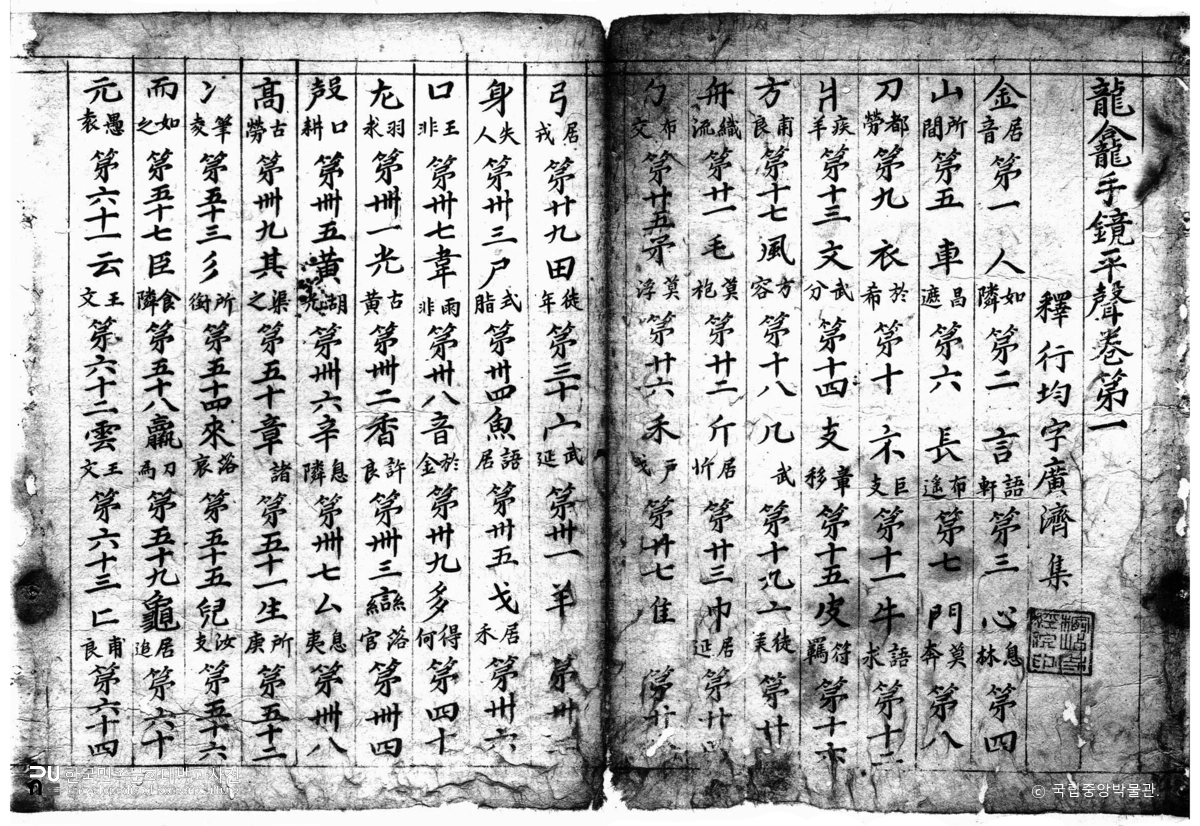 龍龕手鏡平聲卷第一
釋行均字廣濟集
金居音第一人如隣第二言語軒第三心息林第四
山所間第五車昌遮第六長布遙第七門莫奔第八
刀都勞第九衣於希第十示巨支第十一牛語求第十二
爿疾羊第十三文武分第十四支章移第十五皮符羈第十六
方甫良第十七風方容第十八几武第十九亠徒第廿
舟織流第廿一毛莫袍第廿二斤居忻第廿三巾居第廿
勹布交第廿五矛莫浮第廿六禾戶戈第廿七隹第廿
弓居戎第廿九田徒年第三十宀武延第卅一羊第卅
身失人第卅三尸式脂第卅四魚語居第卅五戈居禾第卅六
囗王非第卅七韋雨非第卅八音於金第卅九多得何第四十
尢羽求第卌一光古黃第卌二香許良第卌三䜌落官第卌四
殸口耕第卌五黃胡光第卌六辛息隣第卌七厶息夷第卌八
髙古勞第卌九其渠之第五十章諸第五十一生所庚第五十二
冫筆夌第五十三彡所銜第五十四來落哀第五十五兒汝支第五十六
而如之第五十七臣食隣第五十八羸刀為第五十九龜居追第六十
元愚袁第六十一云王文第六十二雲王文第六十三匚甫良第六十四
© 국립중앙박물관.